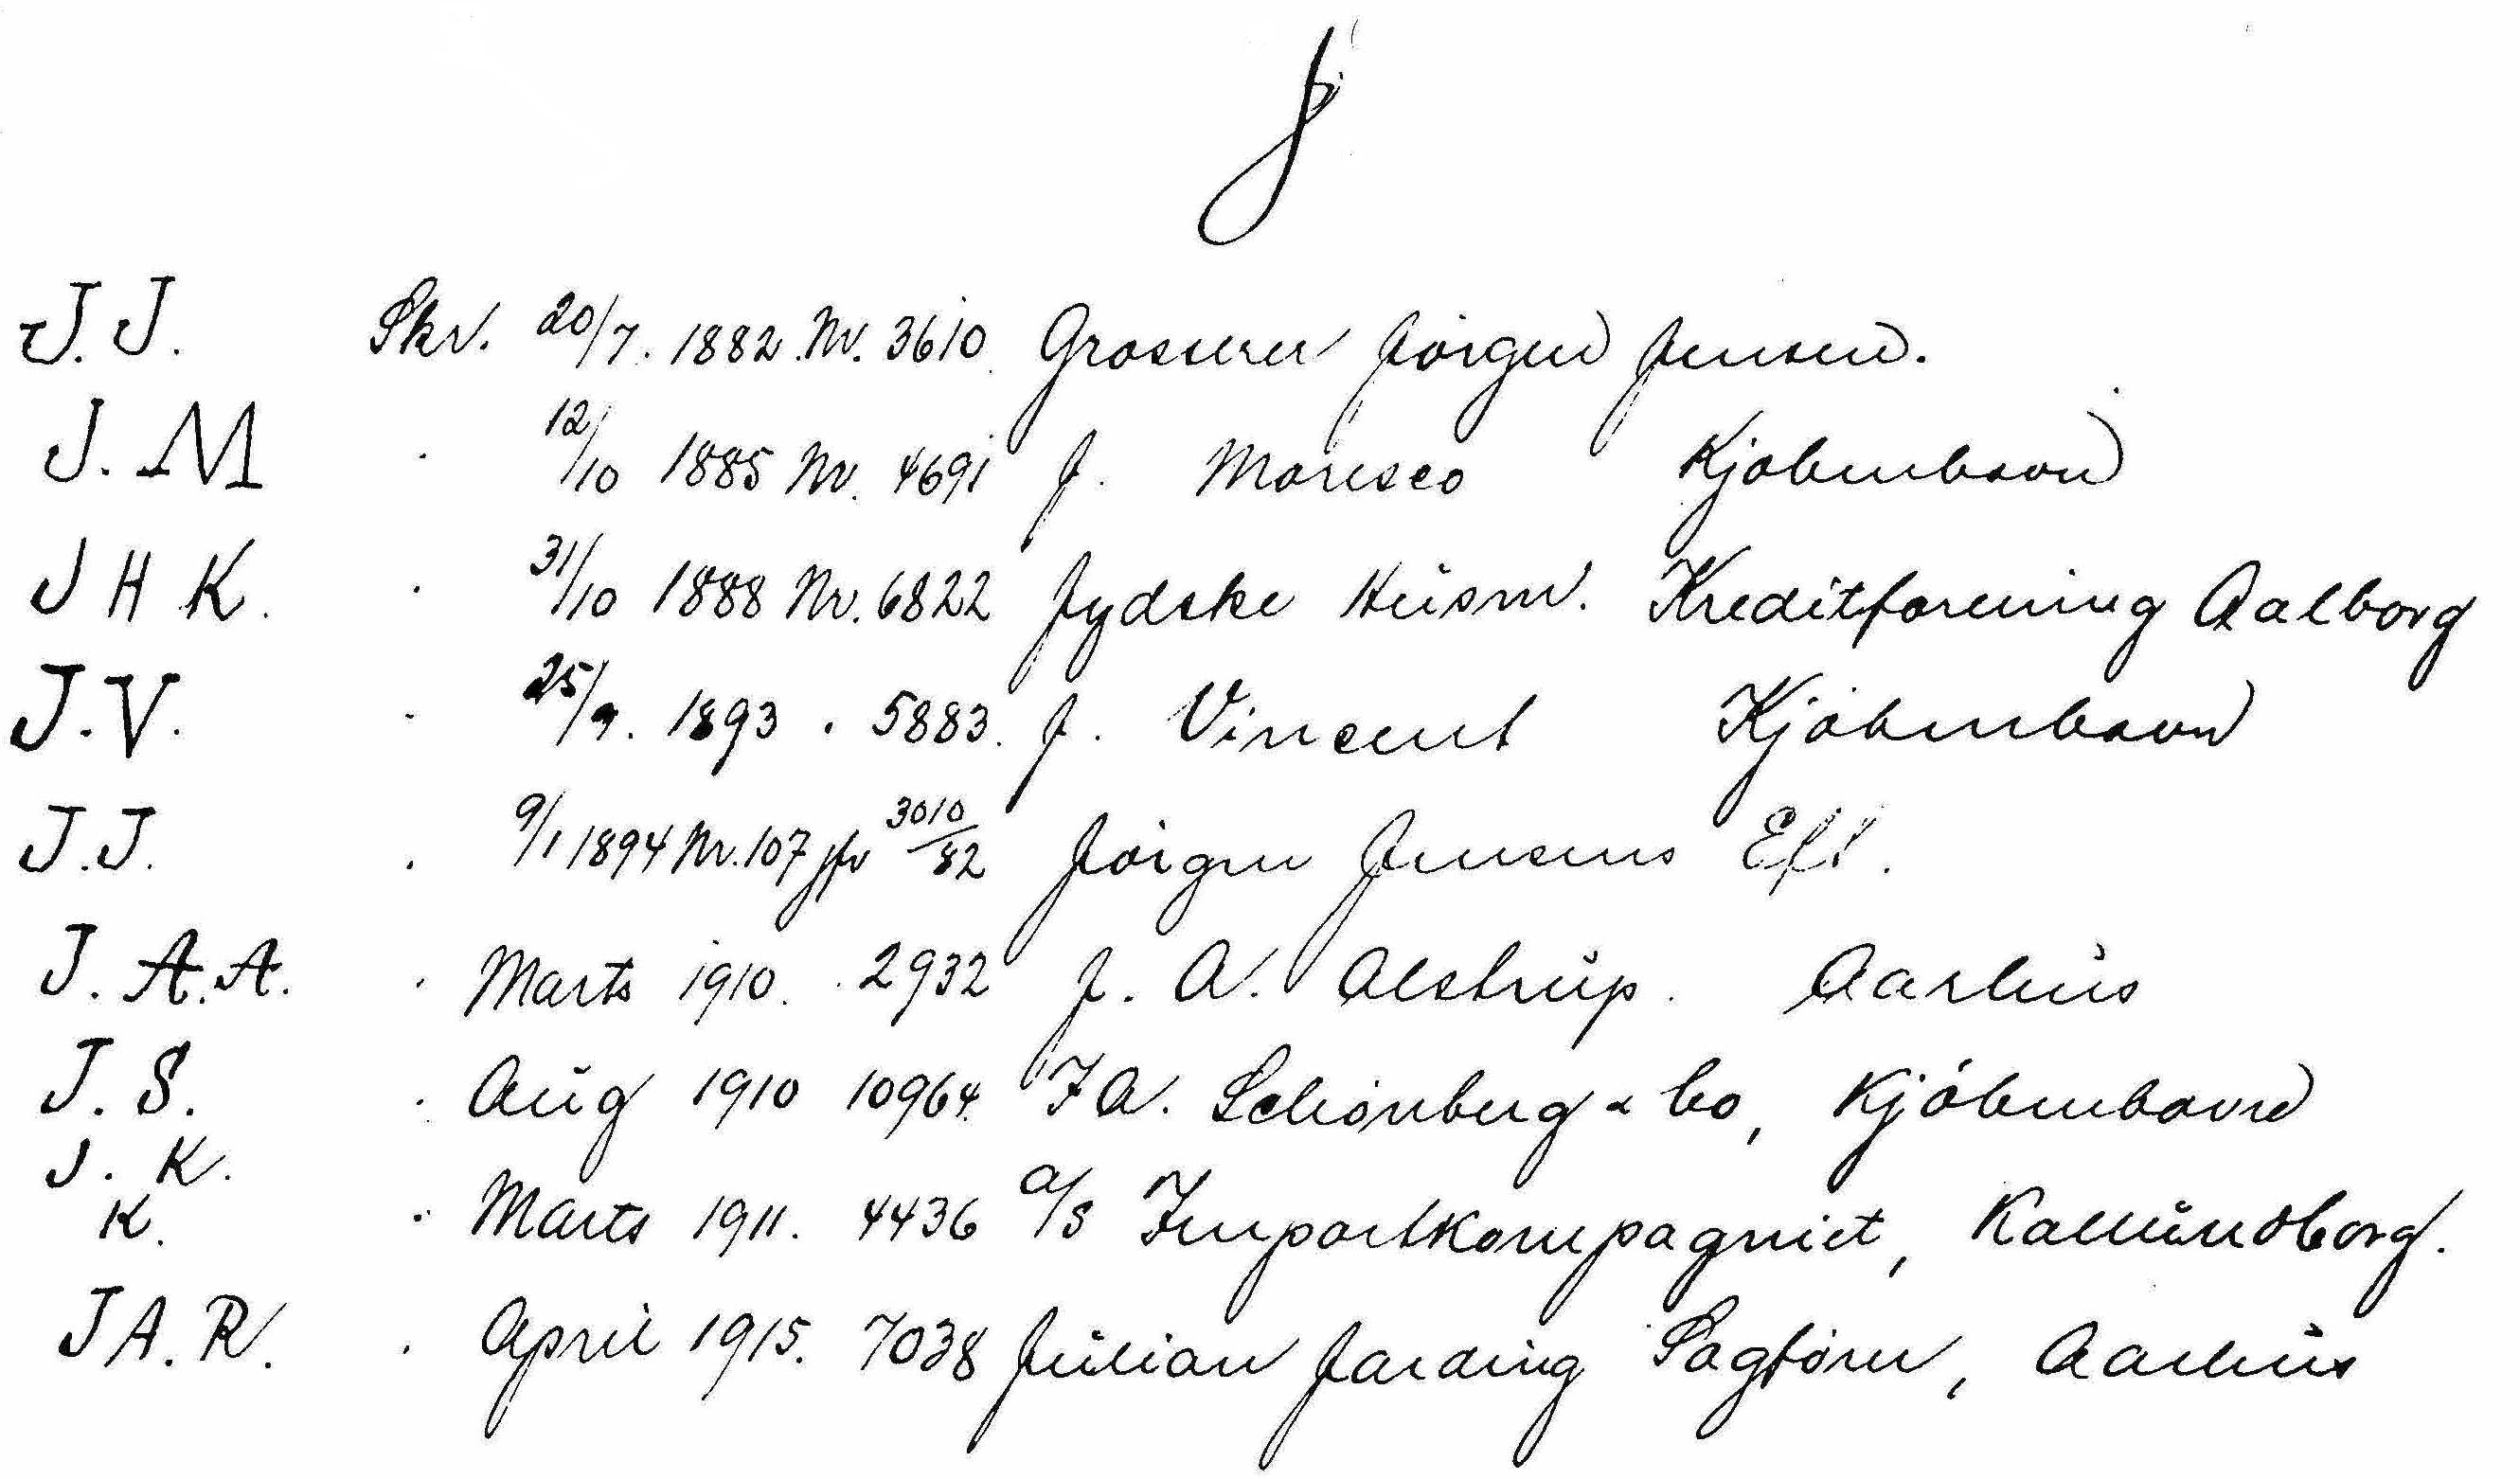 J
J.J. Skr. 20/7. 1882. Nr. 3610. Grosserer Jörgen Jensen.
J.M . 12/10 1885 Nr. 4691 J. Moresco Kjöbenhavn
J H K. . 31/10 1888 Nr. 6822 Jydske Husm. Kreditforening Aalborg
J.V. . 25/9. 1893 . 5883. J. Vincent Kjöbenhavn
J.J. . 9/1 1894 Nr. 107 jfr 3010/82 Jörgen Jensens Eft.
J. A.A. . Marts 1910. . 2932 J. A. Alstrup. Aarhus
J. S. . Aug 1910 10964. I A. Schönberg & Co, Kjöbenhavn
J. K.
K. . Marts 1911. 4436 A/S Importkompagniet, Kallundborg.
J A. R. . April 1915. 7038 Julian Jarding Sagförer, Aarhus